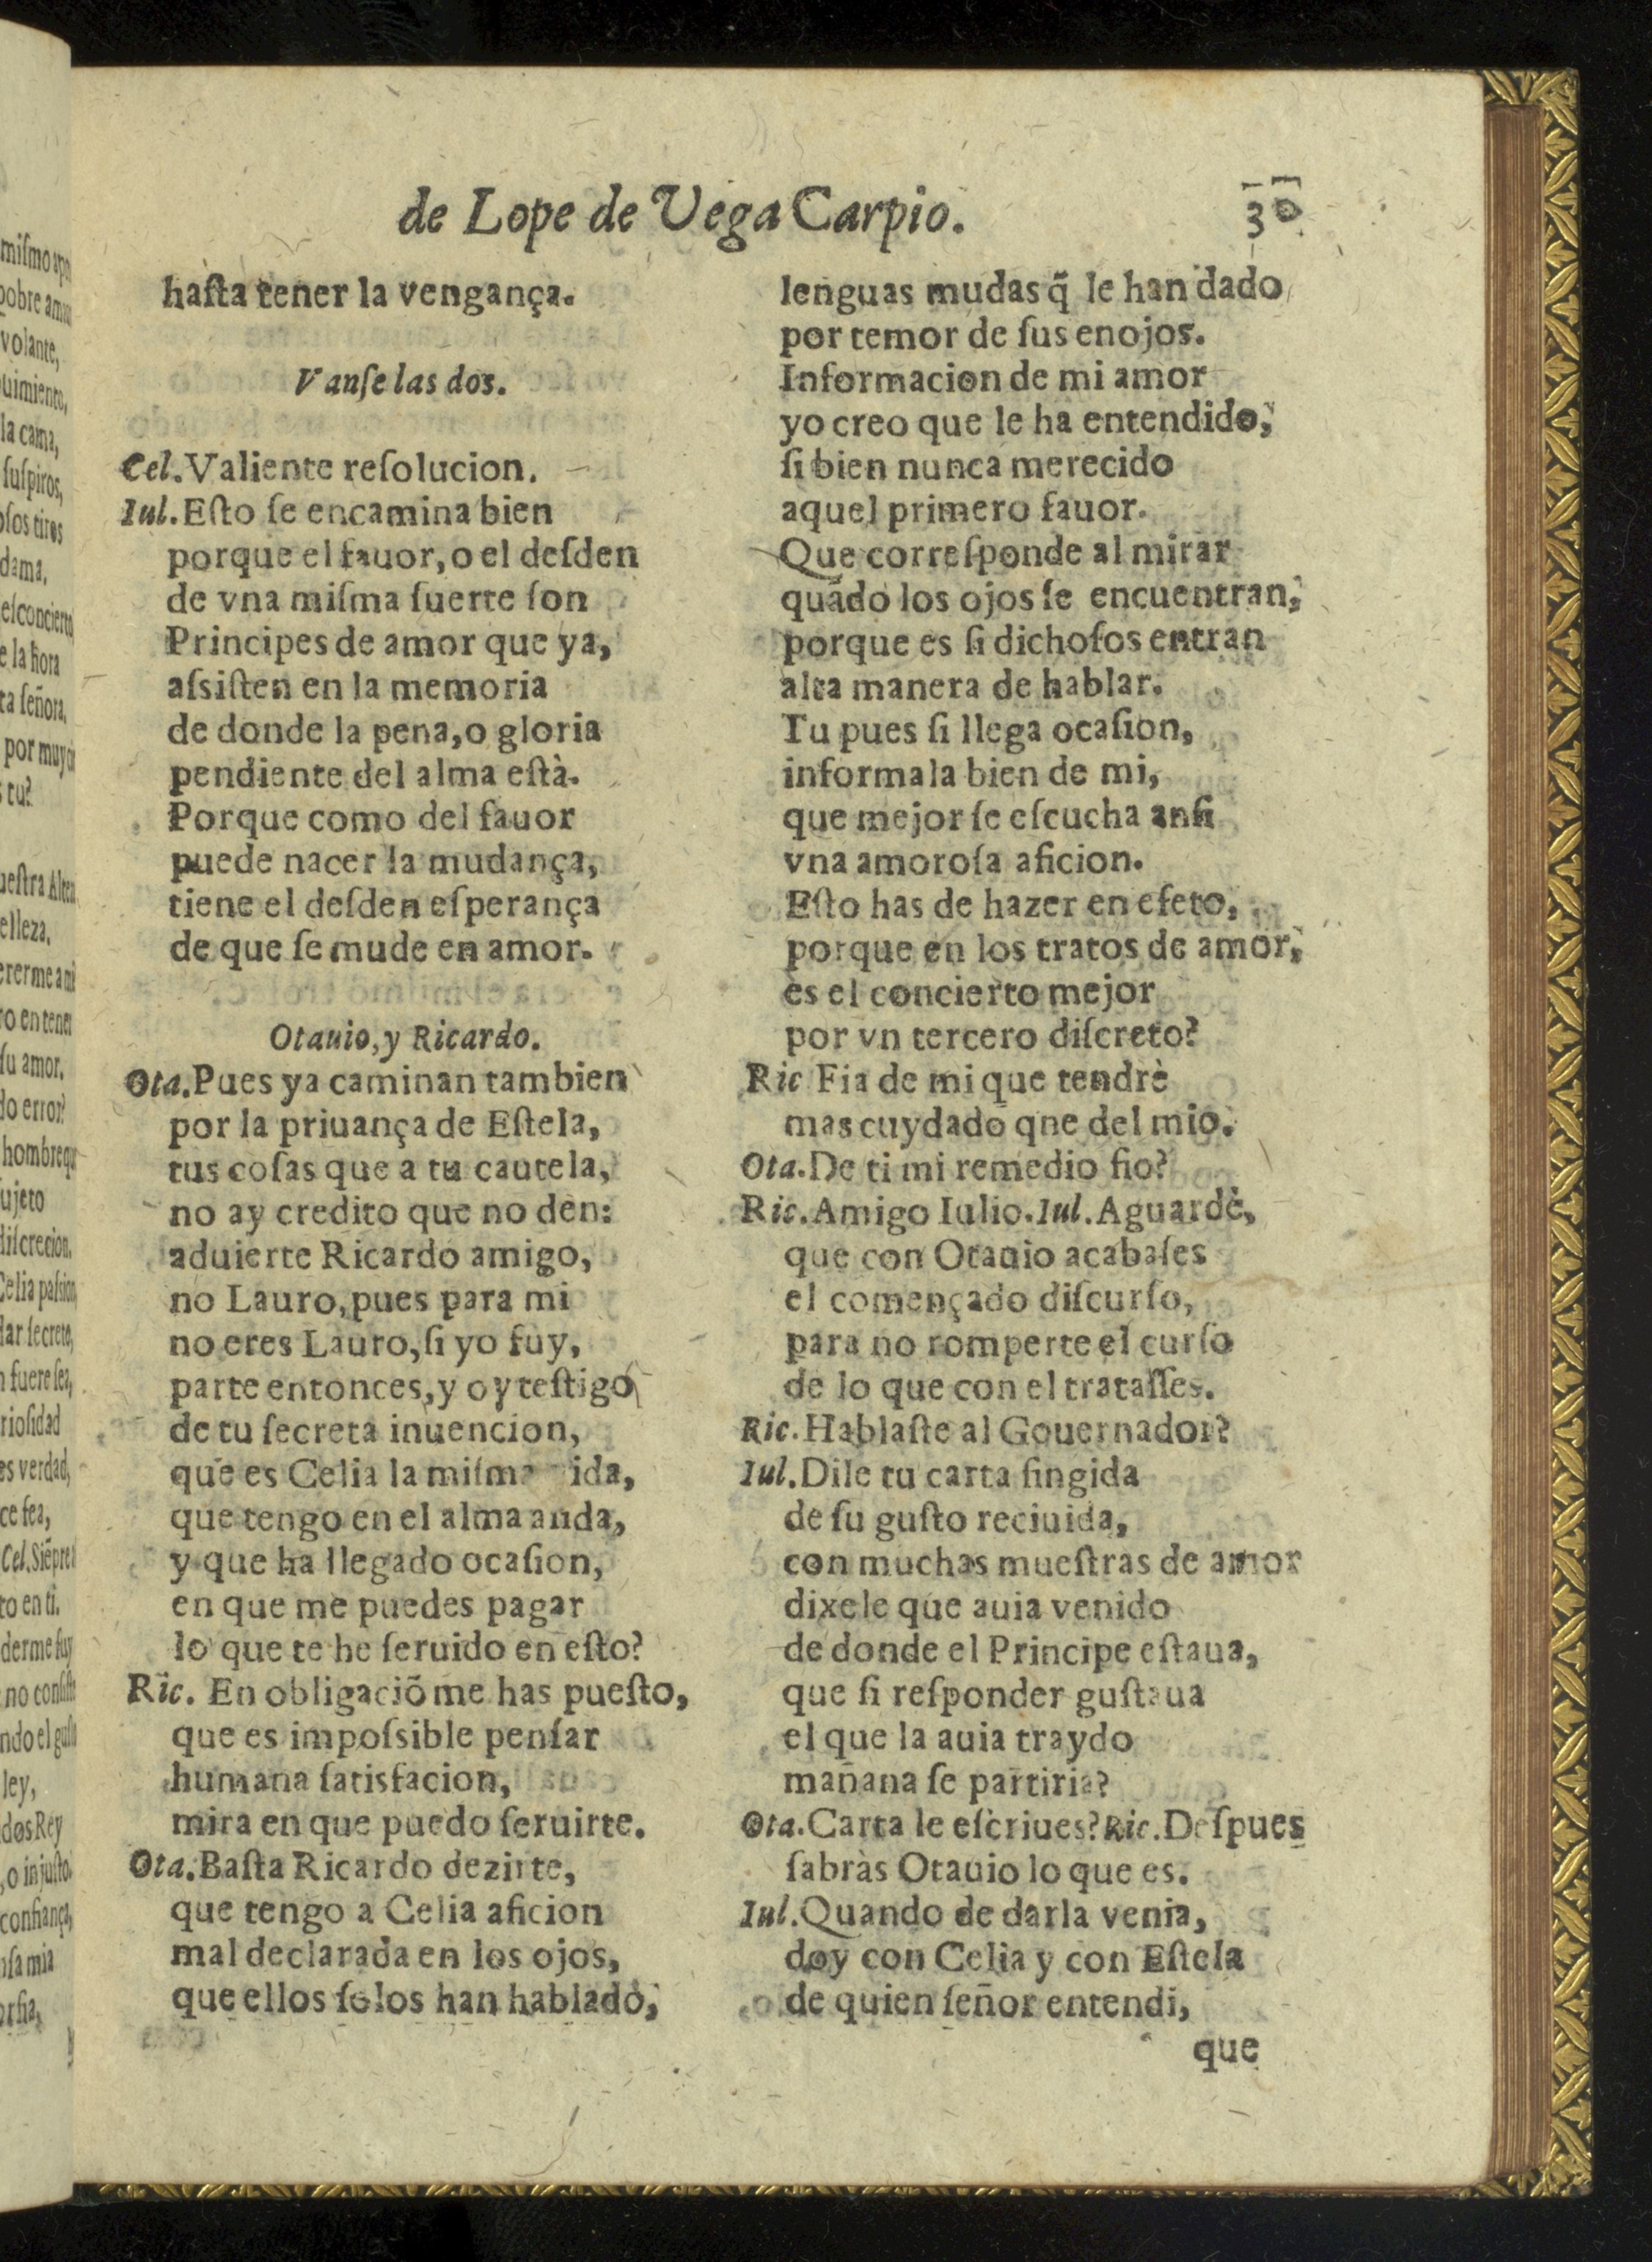 de Lope de Vega Carpio.
30
haſta tener la vengança.
Vanſe las dos.
Cel.Valiente reſolucion.
Iul.Eſto ſe encamina bien
porque el fauor, o el deſden
de vna miſma ſuerte ſon
Principes de amor que ya,
aſsiſten en la memoria
de donde la pena, o gloria
pendiente del alma eſtà.
Porque como del fauor
puede nacer la mudança,
tiene el deſden eſperança
de que ſe mude en amor.
Otauio, y Ricardo.
Ota.Pues ya caminan tambien
por la priuança de Eſtela,
tus coſas que a tu cautela,
no ay credito que no den:
aduierte Ricardo amigo,
no Lauro, pues para mi
no eres Lauro, ſi yo fuy,
parte entonces, y oy teſtigo
de tu ſecreta inuencion,
que es Celia la miſma ida,
que tengo en el alma anda,
y que ha llegado ocaſion,
en que me puedes pagar
lo que te he ſeruido en eſto?
Ric. En obligaciõ me has pueſto,
que es impoſsible penſar
humana ſatisfacion,
mira en que puedo ſeruirte.
Ota.Baſta Ricardo dezirte,
que tengo a Celia aficion
mal declarada en los ojos,
que ellos ſolos han hablado,
lenguas mudas q̃ le han dado
por temor de ſus enojos.
Informacion de mi amor
yo creo que le ha entendido,
ſi bien nunca merecido
aquel primero fauor.
Que correſponde al mirar
quãdo los ojos ſe encuentran,
porque es ſi dichoſos entran
alta manera de hablar.
Tu pues ſi llega ocaſion,
informala bien de mi,
que mejor ſe eſcucha anſi
vna amoroſa aficion.
Eſto has de hazer en efeto,
porque en los tratos de amor,
es el concierto mejor
por vn tercero diſcreto?
Ric Fia de mi que tendrè
mas cuydado qne del mio.
Ota.De ti mi remedio fio?
Ric.Amigo Iulio. Iul.Aguardè,
que con Otauio acabaſes
el començado diſcurſo,
para no romperte el curſo
de lo que con el trataſſes.
Ric.Hablaſte al Gouernador?
Iul.Dile tu carta fingida
de ſu guſto reciuida,
con muchas mueſtras de amor
dixele que auia venido
de donde el Principe eſtaua,
que ſi reſponder guſtaua
el que la auia traydo
mañana ſe partiria?
Ota.Carta le eſcriues? Ric.Deſpues
ſabràs Otauio lo que es.
Iul.Quando de darla venia,
doy con Celia y con Eſtela
de quien ſeñor entendi,
que